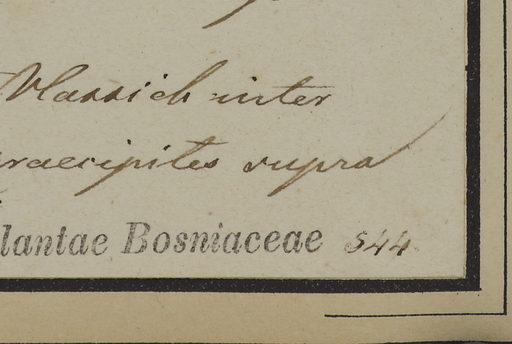 Vlassich inter
raecipites supra
lantae Bosniaceae 544